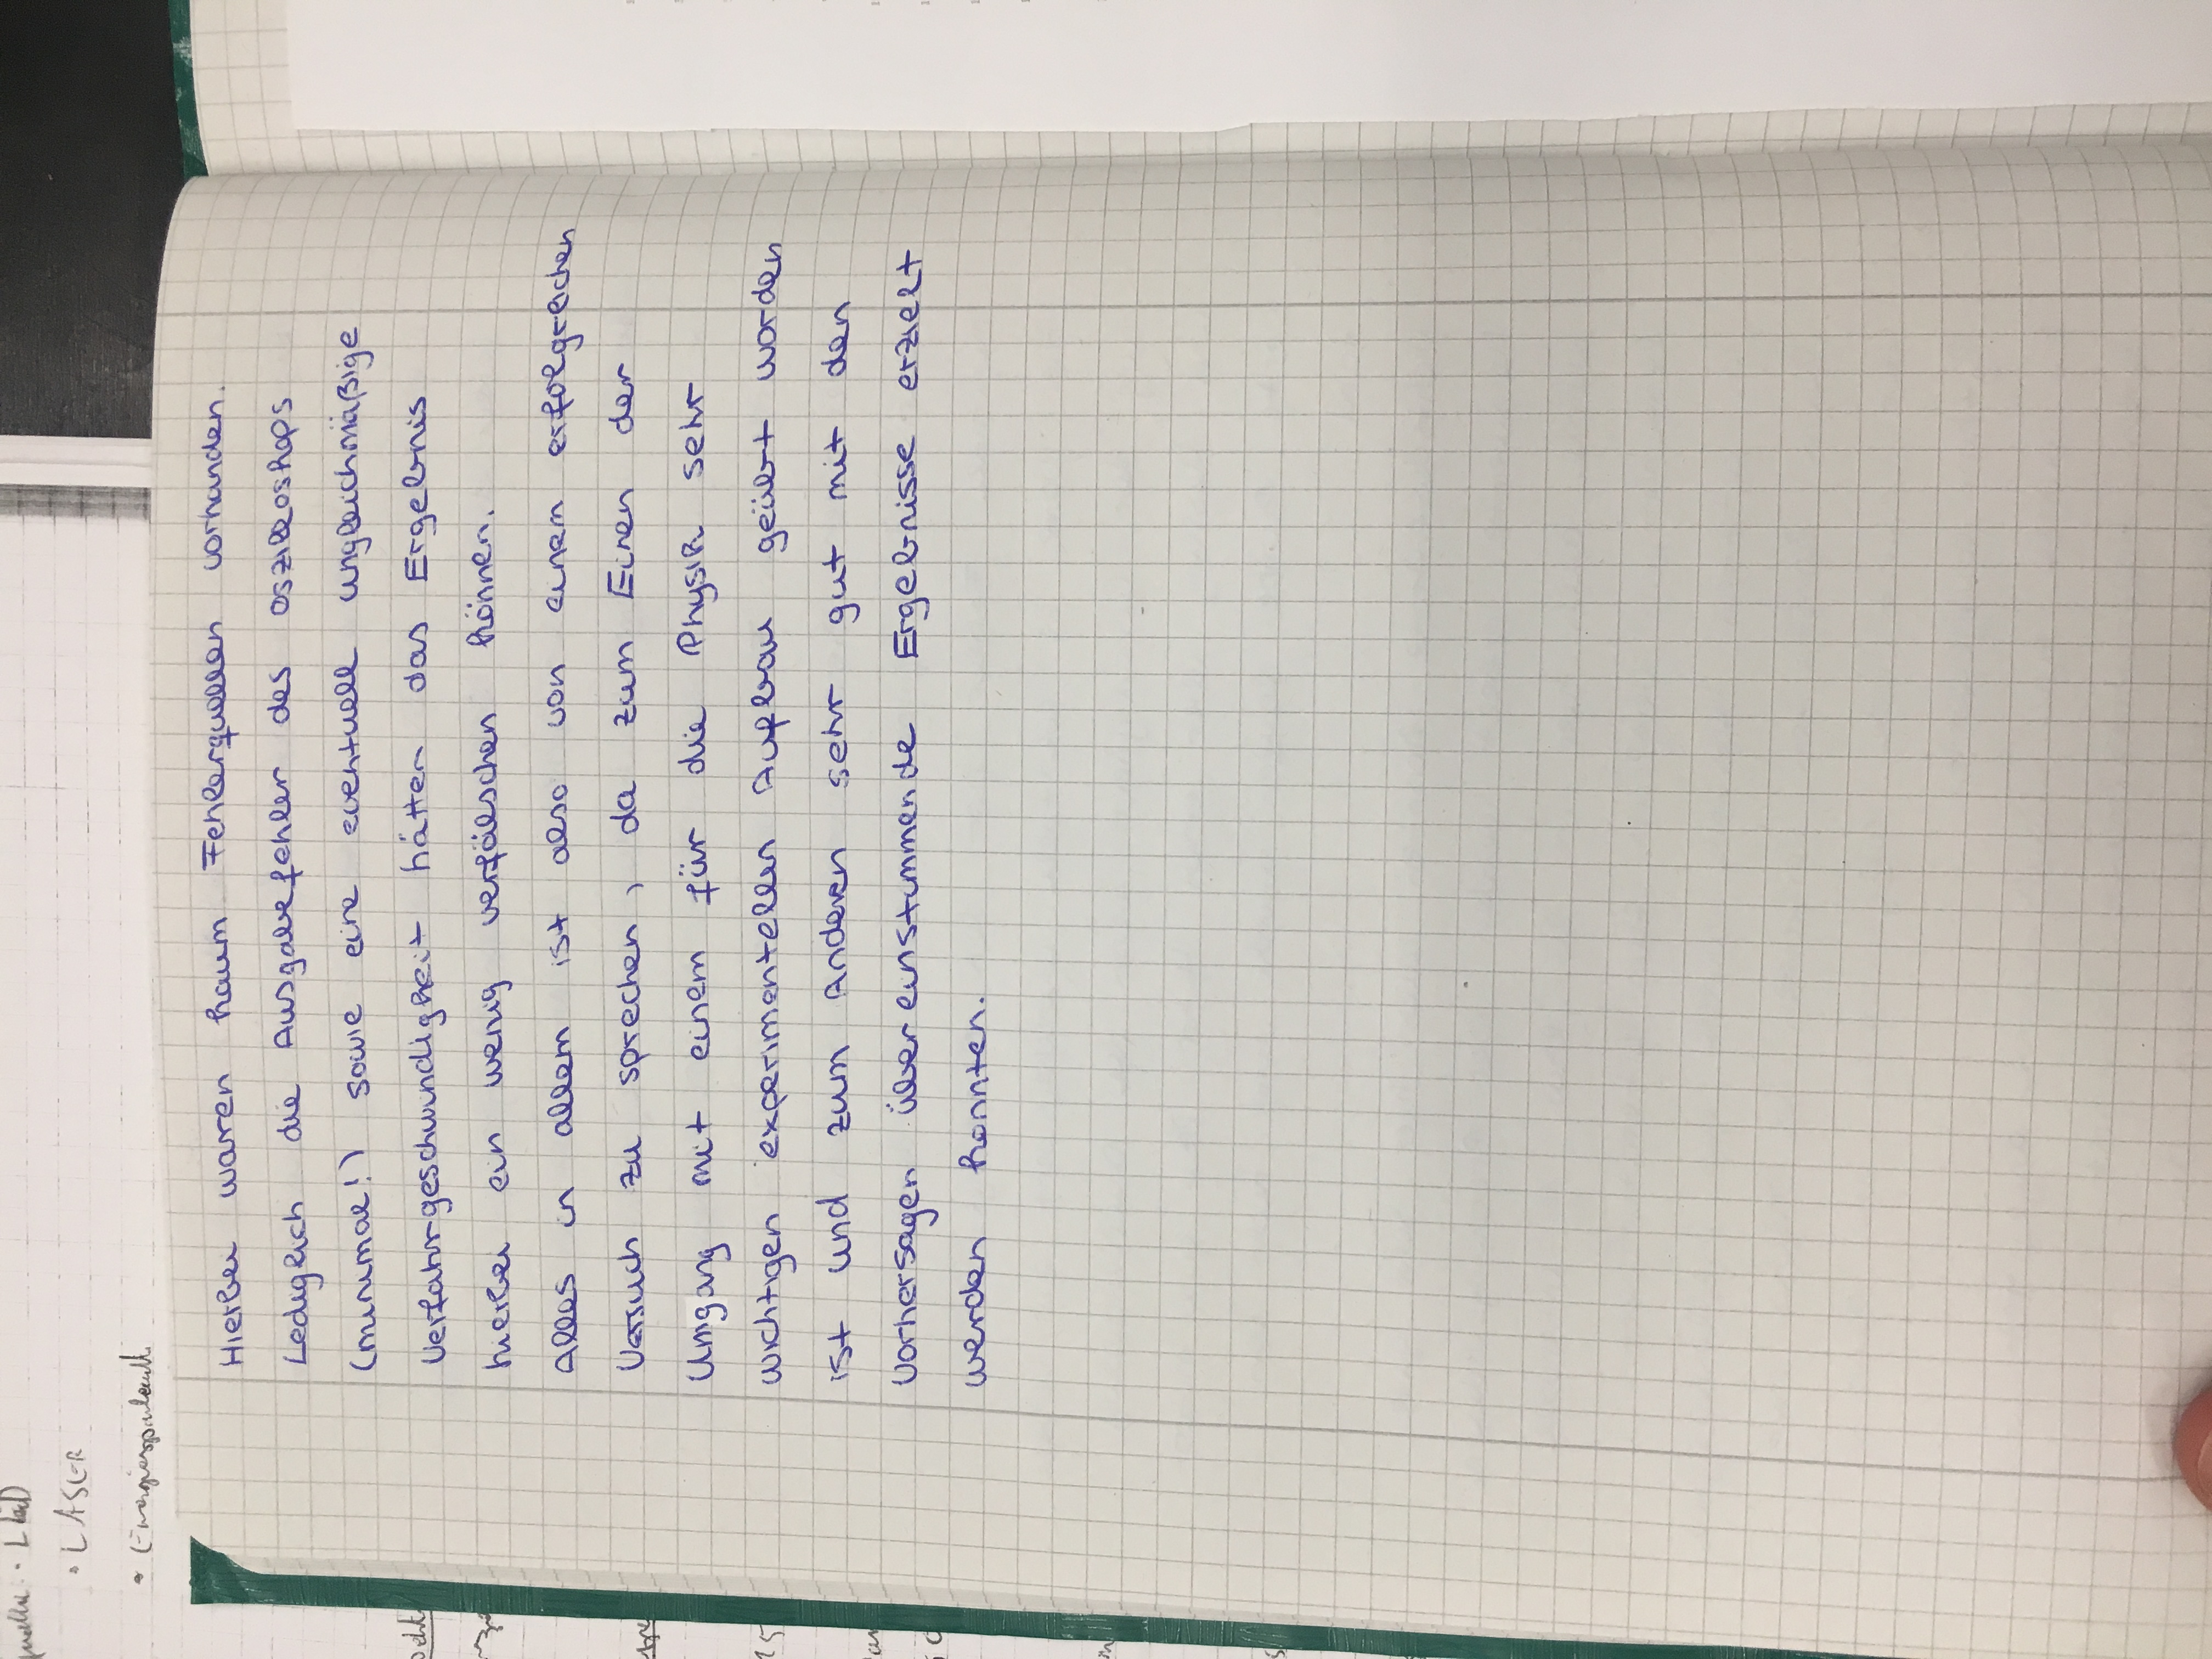 · LED
· LASER
Hierbei waren kaum Fehlerquellen vorhanden.
Lediglich die Ausgabefehler des Oszilloskops
(minimal!) sowie eine eventuell ungleichmäßige
Verfahrgeschwindigkeit hätten das Ergebnis
hierbei ein wenig verfälschen können.
Alles in allem ist also von einem erfolgreichen
Versuch zu sprechen, da zum Einen der
Umgang mit einem für die Physik sehr
wichtigen experimentellen Aufbau geübt worden
ist und zum Anderen sehr gut mit den
Vorhersagen übereinstimmende Ergebnisse erzielt
werden konnten.